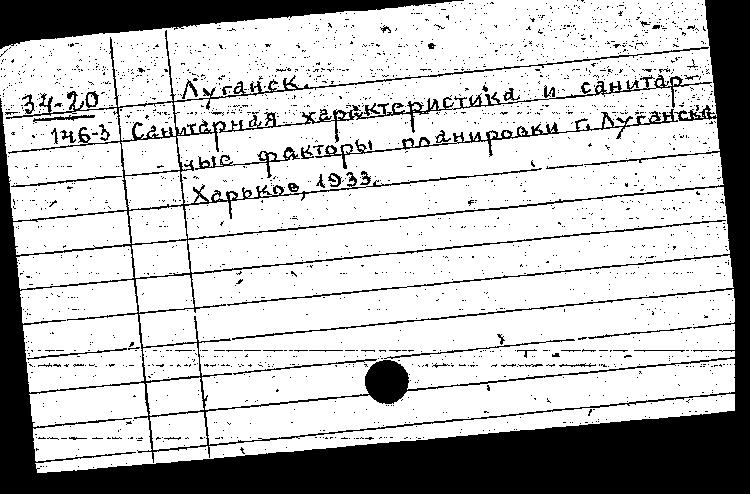 34-20
146-3
Луганск.
Санитарная характеристика и санитар-
ные факторы планировки г. Луганска.
Харьков, 1933.